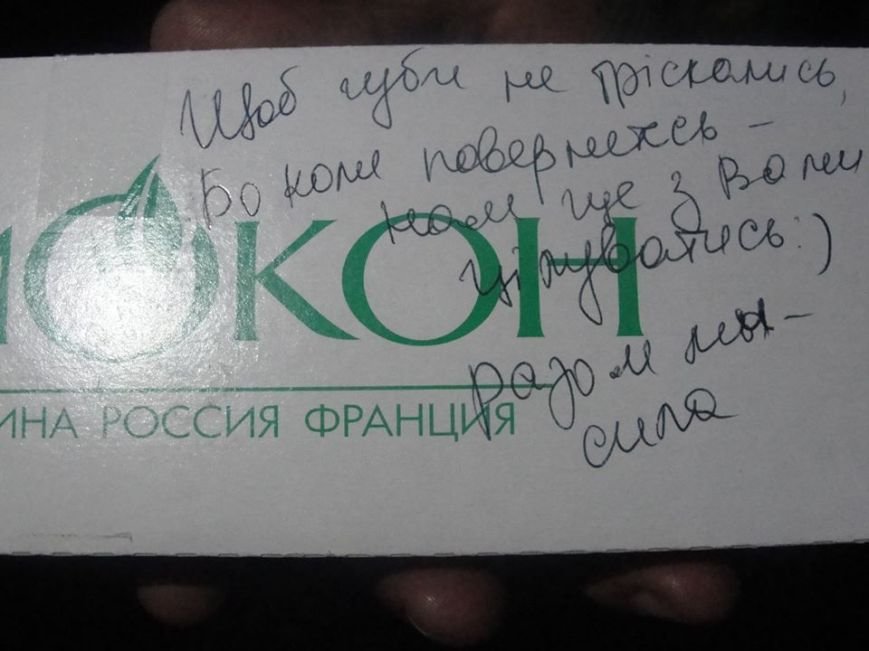 Щоб губи не тріскались,
Бо коли повернетесь –
нам ще з Вами
цілуватись:)
разом ми –
сила
ИОКОН
ИНА РОССИЯ ФРАНЦИЯ